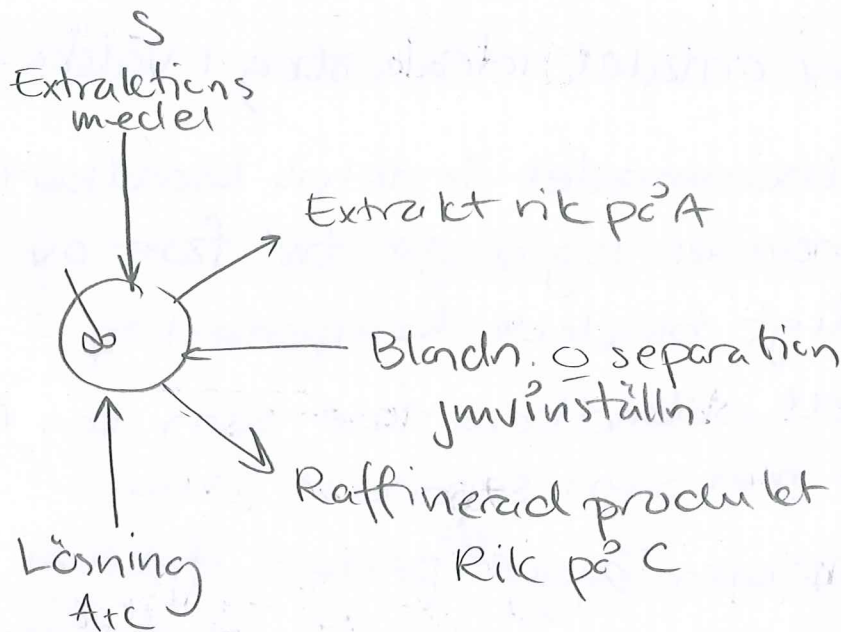 S
Extraktions
medel
Extrakt rik på A
Blandn. o separation
jmvinställn.
Raffinerad produkt
Rik på C
Lösning
A+C